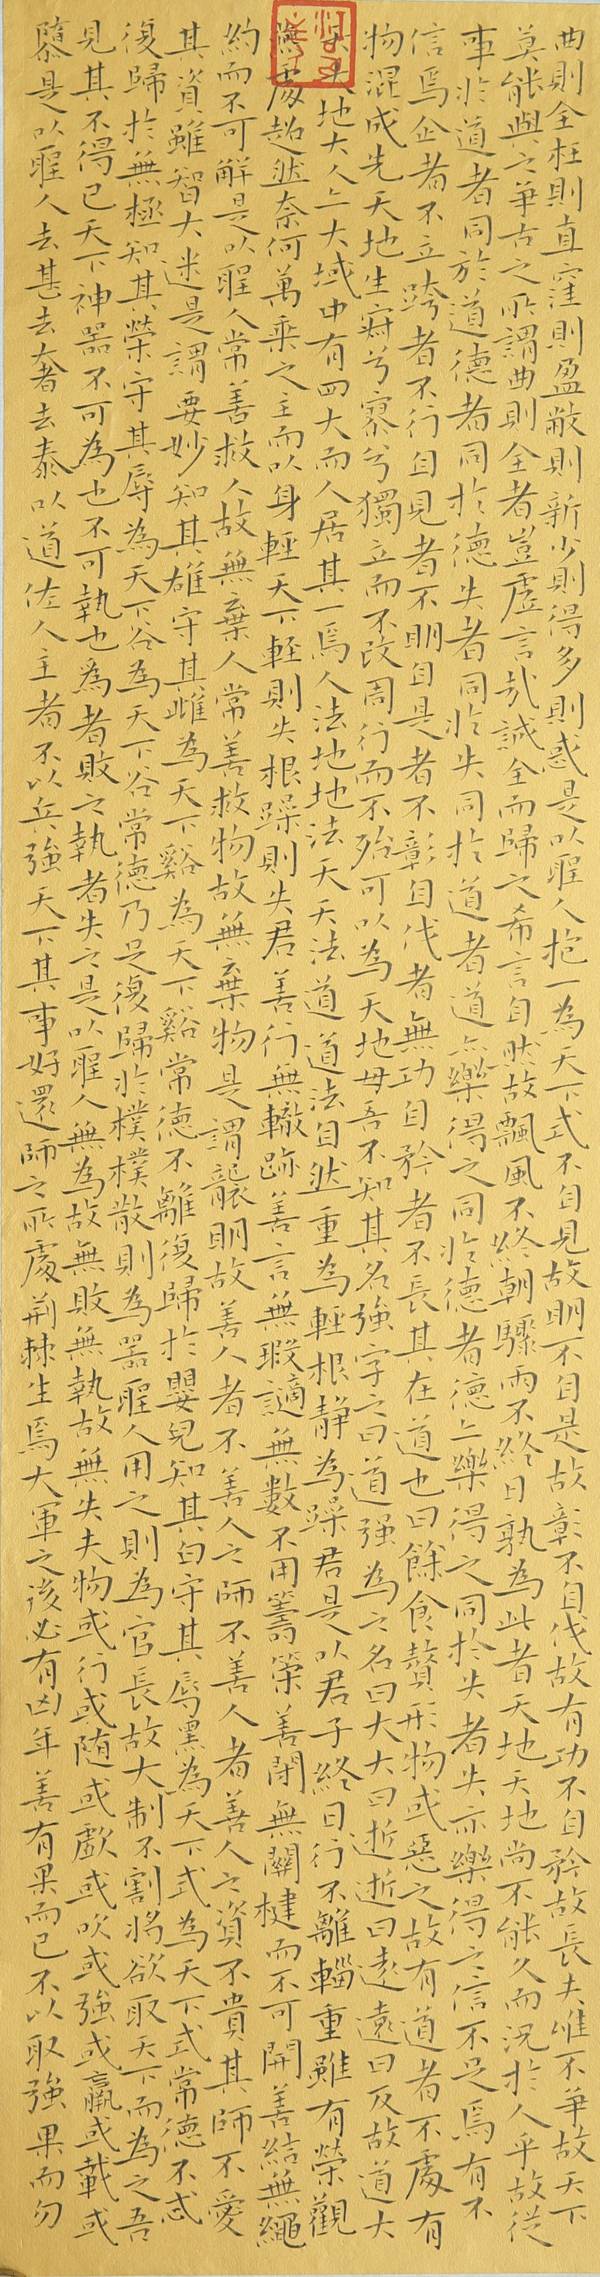 曲則全枉則直窪則盈敝則新少則得多則惑是以聖人抱一為天下式不自見故明不自是故彰不自伐故有功不自矜故長夫唯不爭故天下
莫能與之爭古之所謂曲則全者豈虛言哉誠全而歸之希言自然故飄風不終朝驟雨不終日孰為此者天地天地尚不能久而況於人乎故從
事於道者同於道德者同於德失者同於失同於道者道亦樂得之同於德者德亦樂得之同於失者失亦樂得之信不足焉有不
信焉企者不立跨者不行自見者不明自是者不彰自伐者無功自矜者不長其在道也曰餘食贅形物或惡之故有道者不處有
物混成先天地生寂兮寥兮獨立而不改周行而不殆可以為天地母吾不知其名強字之曰道强為之名曰大大曰逝逝曰遠遠曰反故道大
大地大人亦大域中有四大而人居其一焉人法地地法天天法道道法自然重為輕根靜為躁君是以君子終日行不離輜重雖有榮觀
燕處超然奈何萬乘之主而以身輕天下輕則失根躁則失君善行無轍跡善言無瑕讁無數不用籌策善閉無關楗而不可開善結無繩
約而不可解是以聖人常善救人故無棄人常善救物故無棄物是謂襲明故善人者不善人之師不善人者善人之資不貴其師不愛
其資雖智大迷是謂要妙知其雄守其雌為天下谿為天下谿常德不離復歸於嬰兒知其白守其辱黑為天下式為天下式常德不忒
復歸於無極知其榮守其辱為天下谷為天下谷常德乃足復歸於樸樸散則為器聖人用之則為官長故大制不割將欲取天下而為之吾
見其不得已天下神器不可為也不可執也為者敗之執者失之是以聖人無為故無敗無執故無失夫物或行或随或歔或吹或強或羸或載或
隳是以聖人去甚去奢去泰以道佐人主者不以兵強天下其事好還師之所處荊棘生焉大軍之後必有凶年善有果而已不以取強果而勿